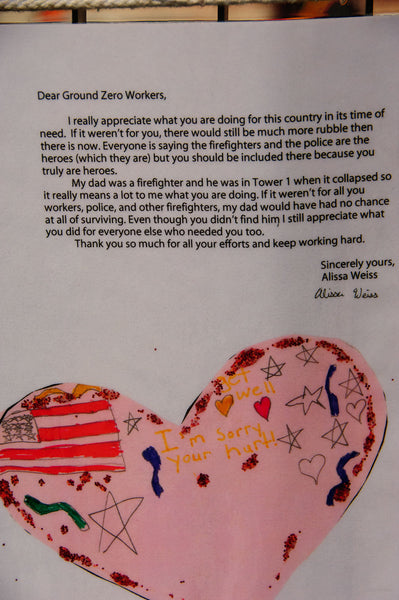 Dear Ground Zero Workers,
I really appreciate what you are doing for this country in its time of
need. If it weren't for you, there would still be much more rubble then
there is now. Everyone is saying the firefighters and the police are the
heroes (which they are) but you should be included there because you
truly are heroes.
My dad was a firefighter and he was in Tower 1 when it collapsed so
it really means a lot to me what you are doing. If it weren't for all you
workers, police, and other firefighters, my dad would have had no chance
at all of surviving. Even though you didn't find him, I still appreciate what
you did for everyone else who needed you too.
Thank you so much for all your efforts and keep working hard.
Sincerely yours,
Alissa Weiss
Alissa Weiss
get
well
I'm sorry
your hurt!